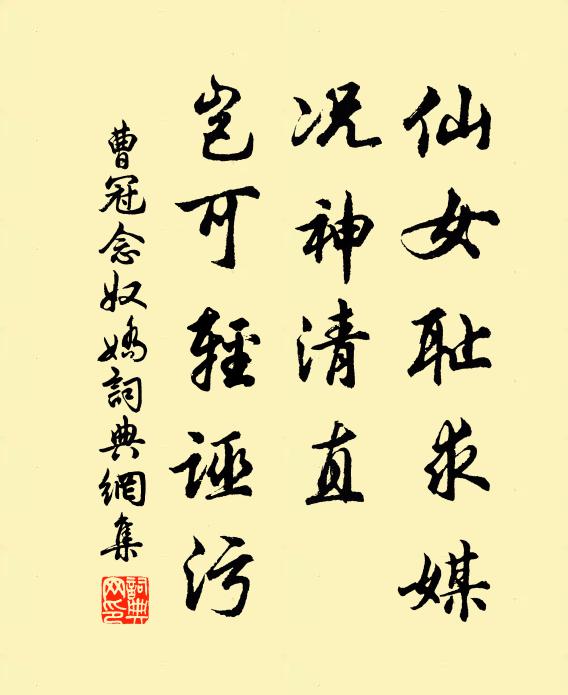 仙女耻求媒
况神清直
岂可輕誣污
曹冠念奴嬌詞典網集
詞典网印